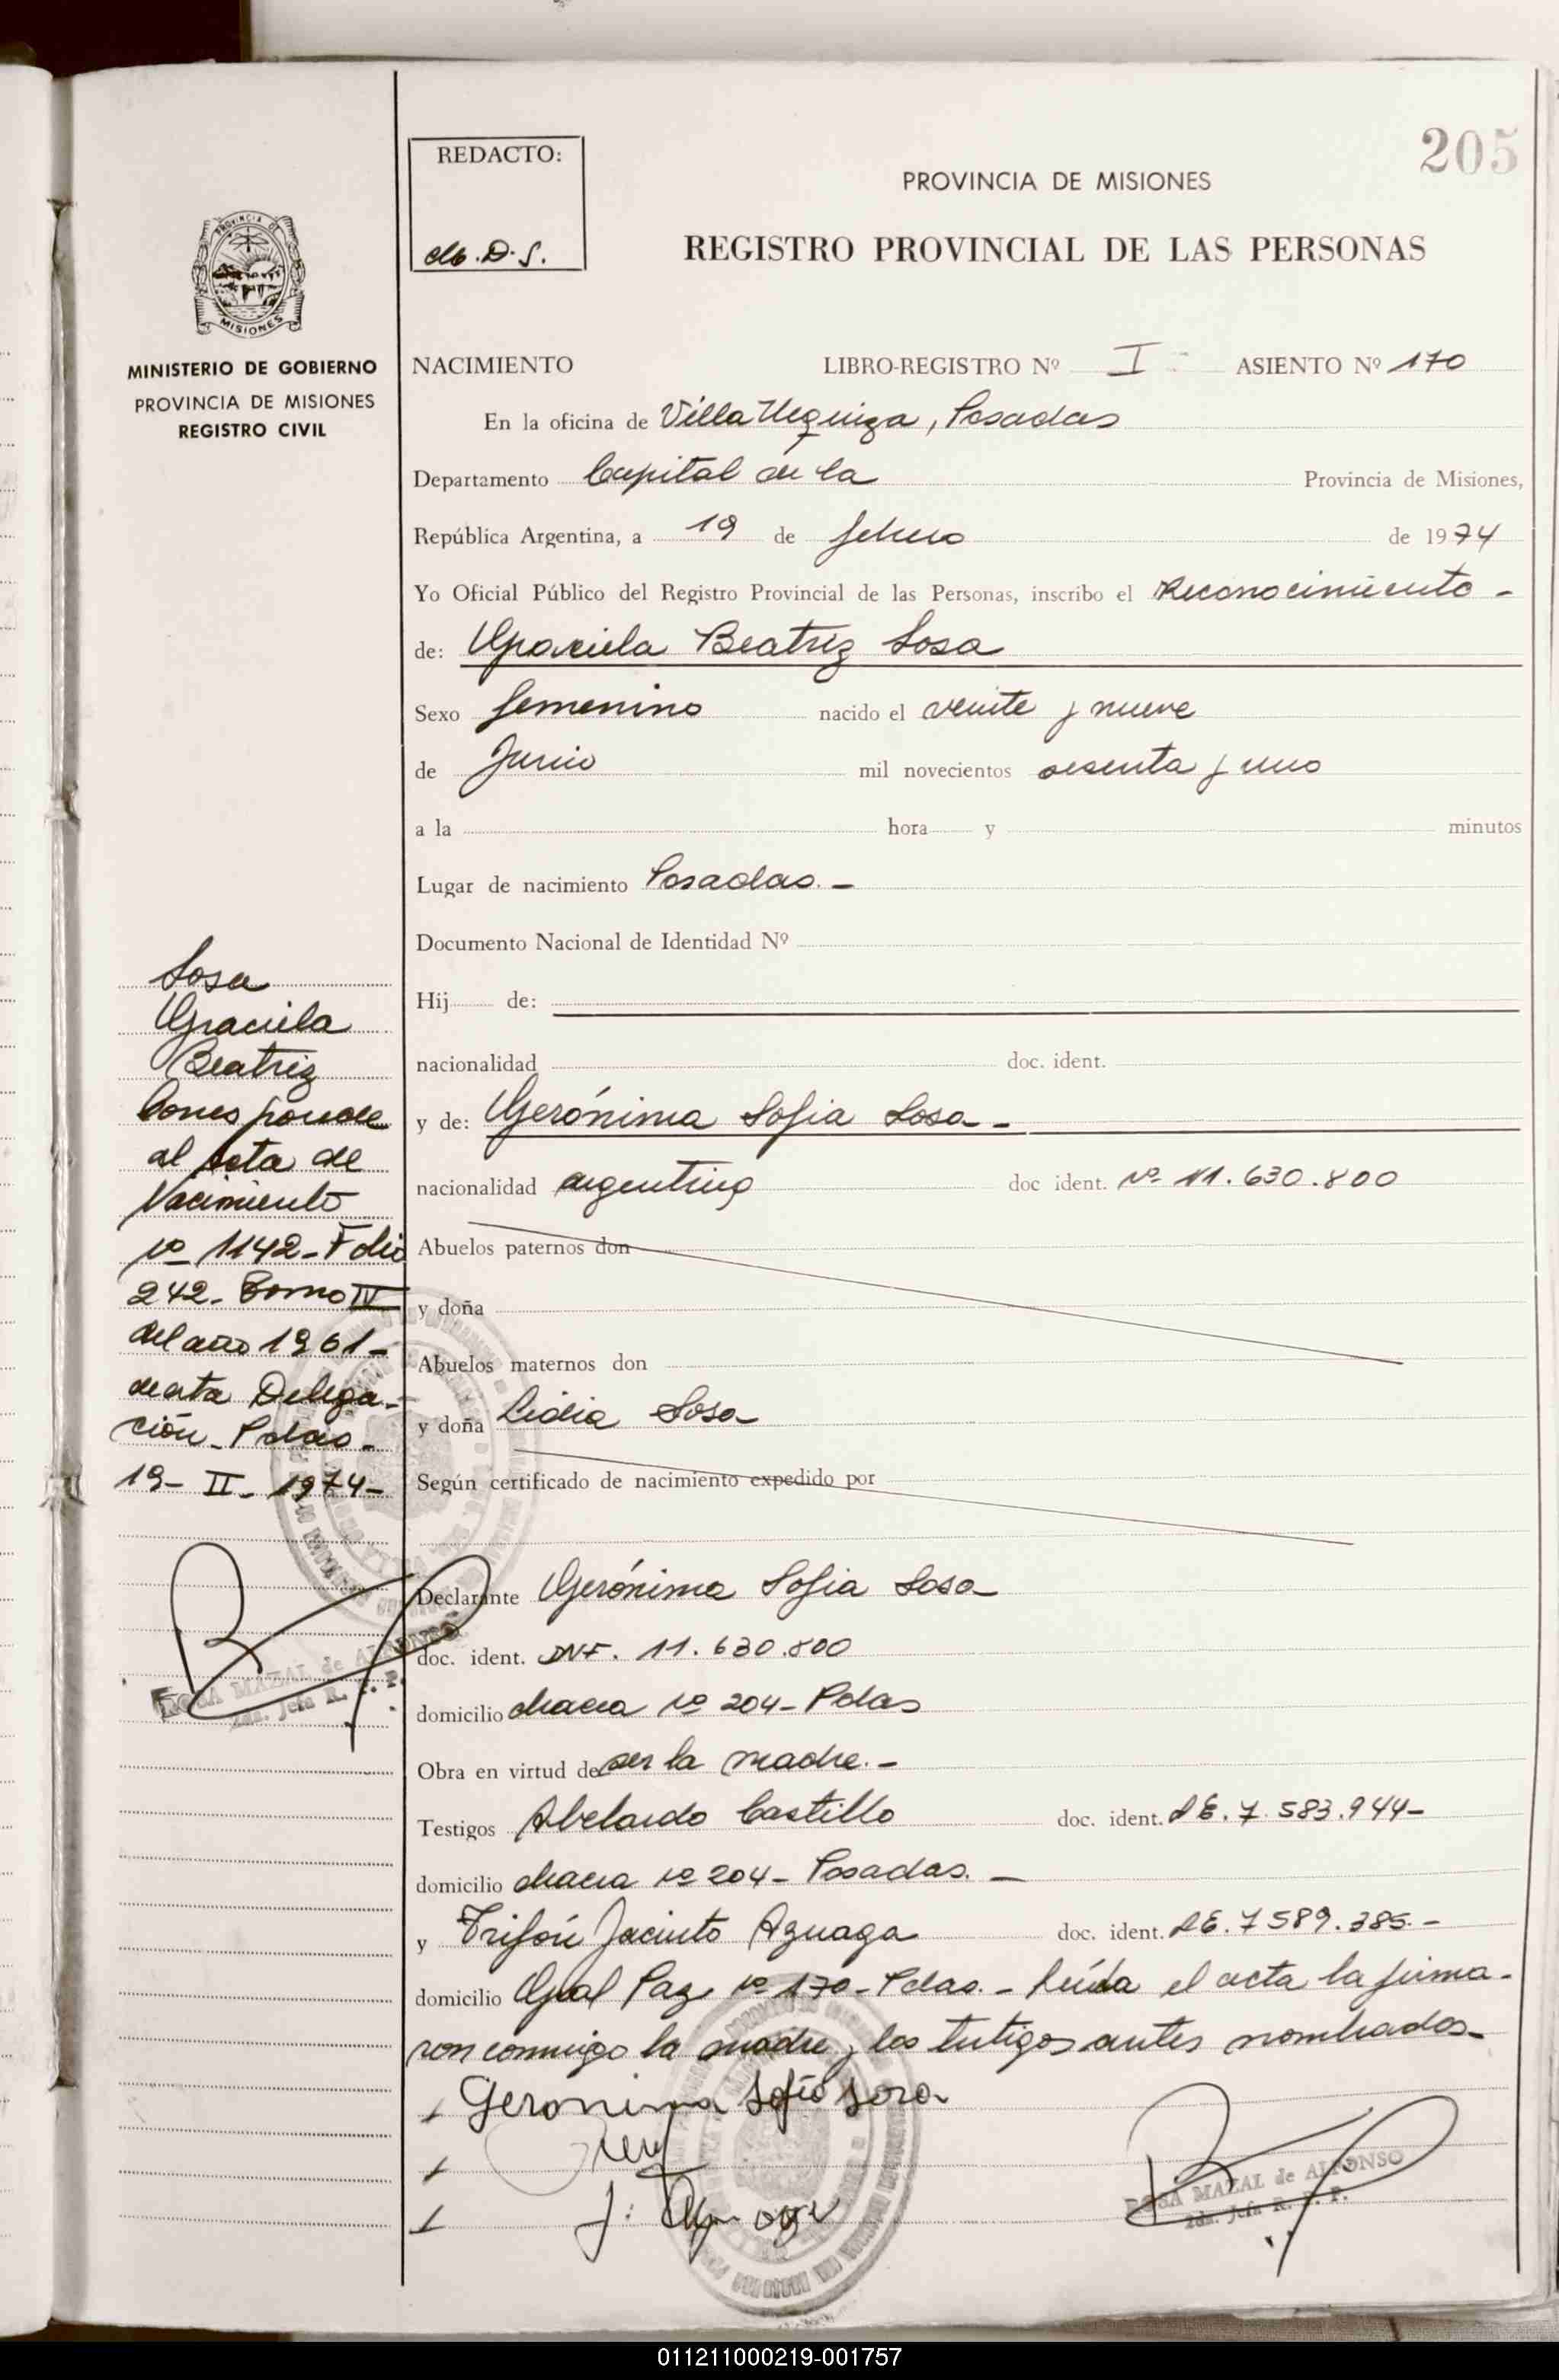 205
REDACTO:
PROVINCIA DE MISIONES
REGISTRO PROVINCIAL DE LAS PERSONAS
PROVINCIA DE
MISIONES
MINISTERIO DE GOBIERNO
PROVINCIA DE MISIONES
REGISTRO CIVIL
NACIMIENTO LIBRO-REGISTRO Nº I ASIENTO Nº 170
En la oficina de Villa Urquiza, Posadas
Departamento Capital de la Provincia de Misiones,
República Argentina, a 19 de febrero de 1974
Yo Oficial Público del Registro Provincial de las Personas, inscribo el Reconocimiento -
de: Graciela Beatriz Sosa
Sexo femenino nacido el veinte y nueve
de Junio mil novecientos sesenta y uno
a la hora y minutos
Lugar de nacimiento Posadas. -
Documento Nacional de Identidad Nº
Hij de:
nacionalidad doc. ident.
y de: Gerónima Sofia Sosa -
nacionalidad argentina doc ident. Nº 11.630.800
Abuelos paternos don
y doña
Abuelos maternos don
y doña Lidia Sosa
Según certificado de nacimiento expedido por
Declarante Gerónima Sofia Sosa
doc. ident. 11.630.800
domicilio chacra nº 204 - Pdas
Obra en virtud de ser la madre. -
Testigos Abelardo Castillo doc. ident. LE. 7.583.944 -
domicilio chacra nº 204 - Posadas. -
y Trifón Jacinto Aguaga doc. ident. LE. 7589.385. -
domicilio Gral Paz nº 170 - Pdas. - Leída el acta la firma-
ron conmigo la madre y los testigos antes nombrados -
Geronima Sofia Sosa
ROSA MAZAL de ALFONSO
2da. Jefa R. P. P.
Sosa
Graciela
Beatriz
Corresponde
al acta de
Nacimiento
nº 1142 - Folio
242 - Tomo IV
del año 1961 -
de esta Delega-
ción - Pdas -
19 - II - 1974 -
ROSA MAZAL de ALFONSO
2da. Jefa R. P. P.
011211000219-001757